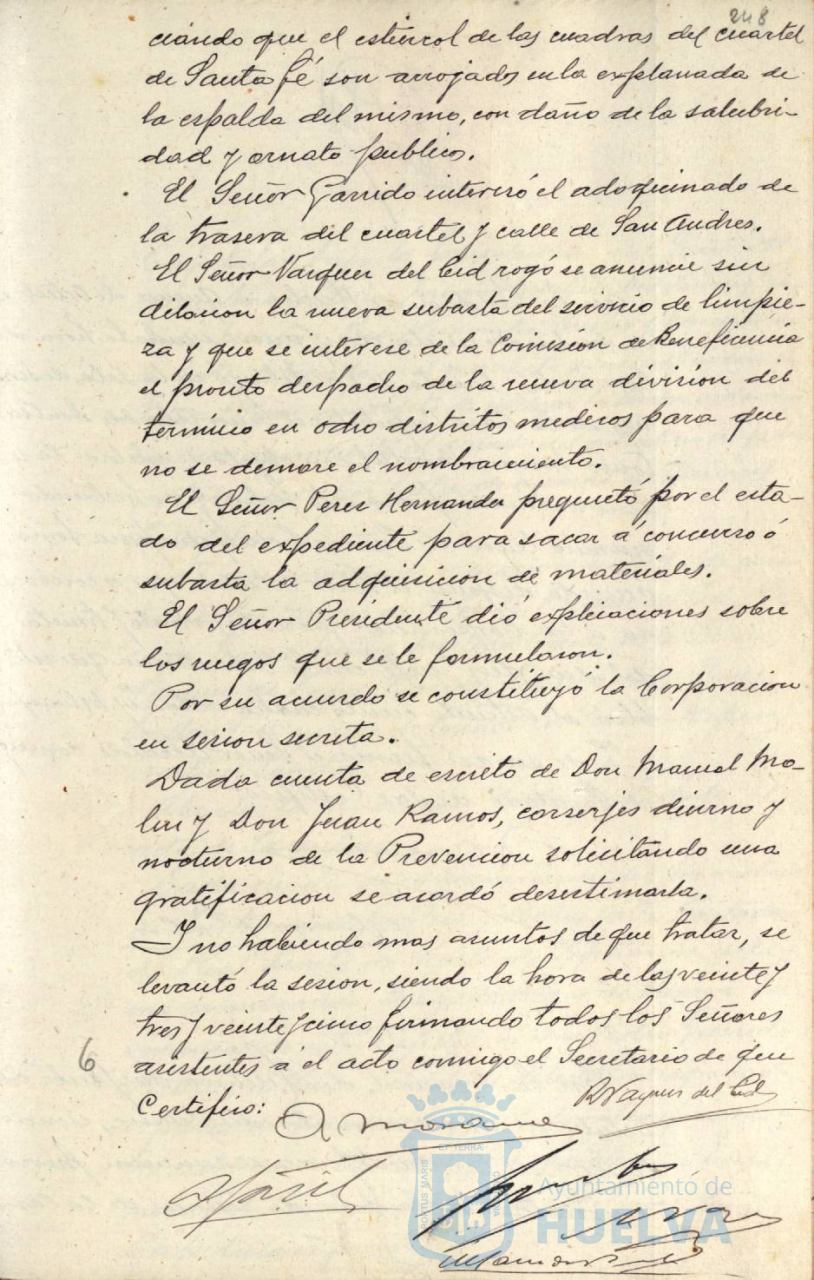 248
ciando que el estiercol de las cuadras del cuartel
de Santa Fé son arrojados en la explanada de
la espalda del mismo, con daño de la salubri-
dad y ornato publico.
El Señor Garrido interesó el adoquinado de
la trasera del cuartel y calle de San Andres.
El Señor Vazquez del Cid rogó se anuncie sin
dilacion la nueva subasta del servicio de limpie-
za y que se interese de la Comision de Beneficencia
el pronto despacho de la nueva division del
termino en ocho distritos medicos para que
no se demore el nombramiento.
El Señor Perez Hernandez preguntó por el esta-
do del expediente para sacar á concurso ó
subasta la adquisicion de materiales.
El Señor Presidente dió explicaciones sobre
los ruegos que se le formularon.
Por su acuerdo se constituyó la Corporacion
en sesion secreta.
Dada cuenta de escrito de Don Manuel Mo-
y Don Juan Ramos, conserjes diurno y
nocturno de la Prevencion solicitando una
gratificacion se acordó desestimarla.
Y no habiendo mas asuntos de que tratar, se
levantó la sesion, siendo la hora de las veinte y
tres y veinte y cinco firmando todos los Señores
asistentes á el acto conmigo el Secretario de que
6
Certifico:
R Vazquez del Cid
PORTUS MARIS
ET TERRAE
CUSTODIA
Ayuntamiento de
HUELVA